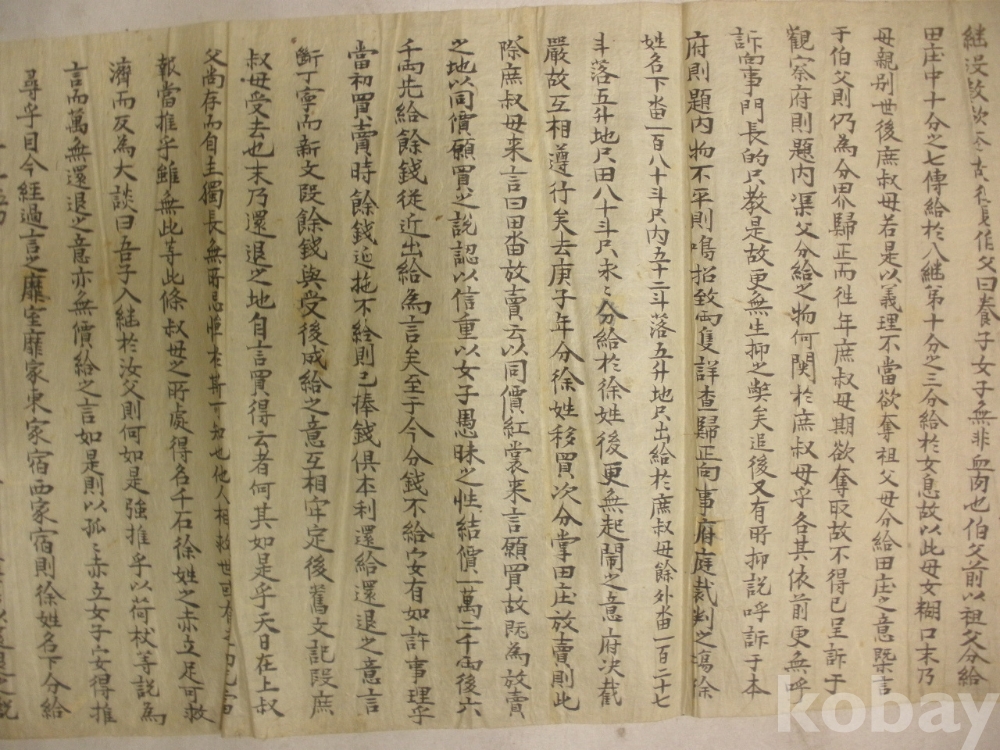 田庄中十分之七傳給於八継第十分之三分給於女息故以此母女糊口末乃
母親別世後庶叔母若是以義理不當欲奪祖父母分給田庄之意槩言
于伯父則仍為分界歸正而徃年庶叔母期欲奪取故不得已呈訴于
觀察府則題內渠父分給之物何関於庶叔母乎各其依前更無呼
訴向事門長的只教是故更無生抑之獘矣追後又有所抑說呼訴于本
府則題內物不平則鳴招致両隻詳查歸正向事府庭裁判之塲徐
姓名下畓一百八十斗只內五十二斗落五升地只出給於庶叔母餘外畓一百二十七
斗落五升地只田八十斗只永々分給於徐姓後更無起鬧之意府決截
嚴故互相遵行矣去庚子年分徐姓移買次分掌田庄放賣則此
際庶叔母来言曰田畓放賣云以同價紅裳来言願買故既為放賣
之地以同價願買之説認以信重以女子愚昧之性結價一萬二千両後六
千両先給餘錢從近出給為言矣至于今分錢不給安有如許事理乎
當初買賣時餘錢延拖不給則已捧錢俱本利還給還退之意言
斷丁寧而新文段餘錢與受後成給之意互相牢定後舊文記段庶
叔母受去也末乃還退之地自言買得云者何其如是乎天日在上叔
父尚存而自主獨長無所忌憚
報當推乎雖無此等此條叔母之所處得名千石徐姓之赤立足可救
濟而反為大談曰吾子入継於汝父則何如是強推乎以荷杖等説為
言而萬無還退之意亦無價給之言如是則以孤々赤立女子安得推
尋乎目今經過言之靡室靡家東家宿西家宿則徐姓名下分給
kobay